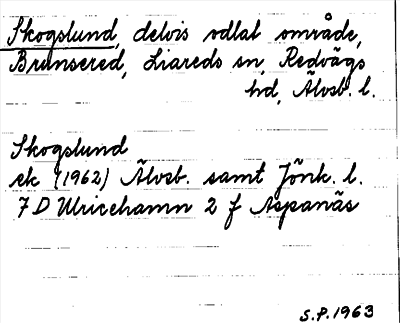 Skogslund, delvis odlat område,
Brunsered, Liareds sn, Redvägs
hd, Älvsb. l.
Skogslund
ek (1962) Älvsb. samt Jönk. l.
7 D Ulricehamn 2 f Aspanäs
S.P. 1963